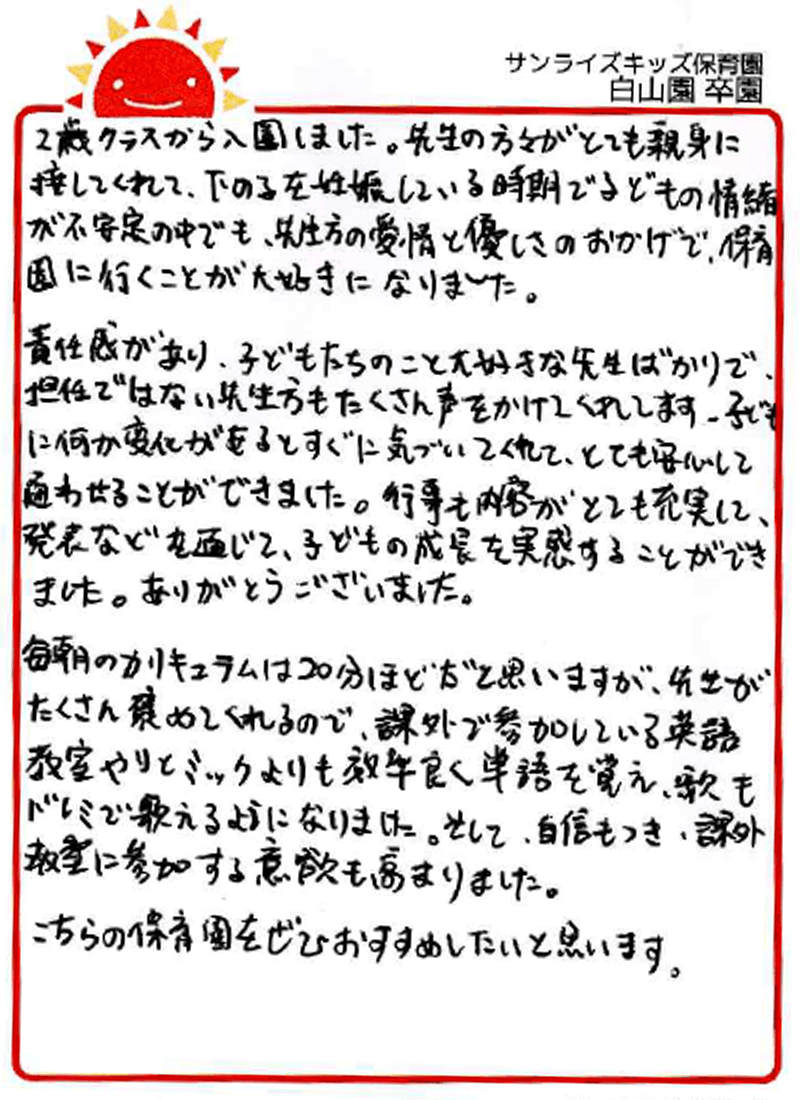 サンライズキッズ保育園
白山園 卒園
2歳クラスから入園しました。先生の方々がとても親身に
接してくれて、下の子を妊娠している時期で子どもの情緒
が不安定の中でも、先生方の愛情と優しさのおかげで、保育
園に行くことが大好きになりました。
責任感があり、子どもたちのこと大好きな先生ばかりで、
担任ではない先生方もたくさん声をかけてくれてます。子ども
に何か変化があるとすぐに気づいてくれて、とても安心して
通わせることができました。行事も内容がとても充実して、
発表などを通じて、子どもの成長を実感することができ
ました。ありがとうございました。
毎朝のカリキュラムは20分ほどだと思いますが、先生が
たくさん褒めてくれるので、課外で参加している英語
教室やリトミックよりも効率良く単語を覚え、歌も
ドレミで歌えるようになりました。そして、自信もつき、課外
教室に参加する意欲も高まりました。
こちらの保育園をぜひおすすめしたいと思います。